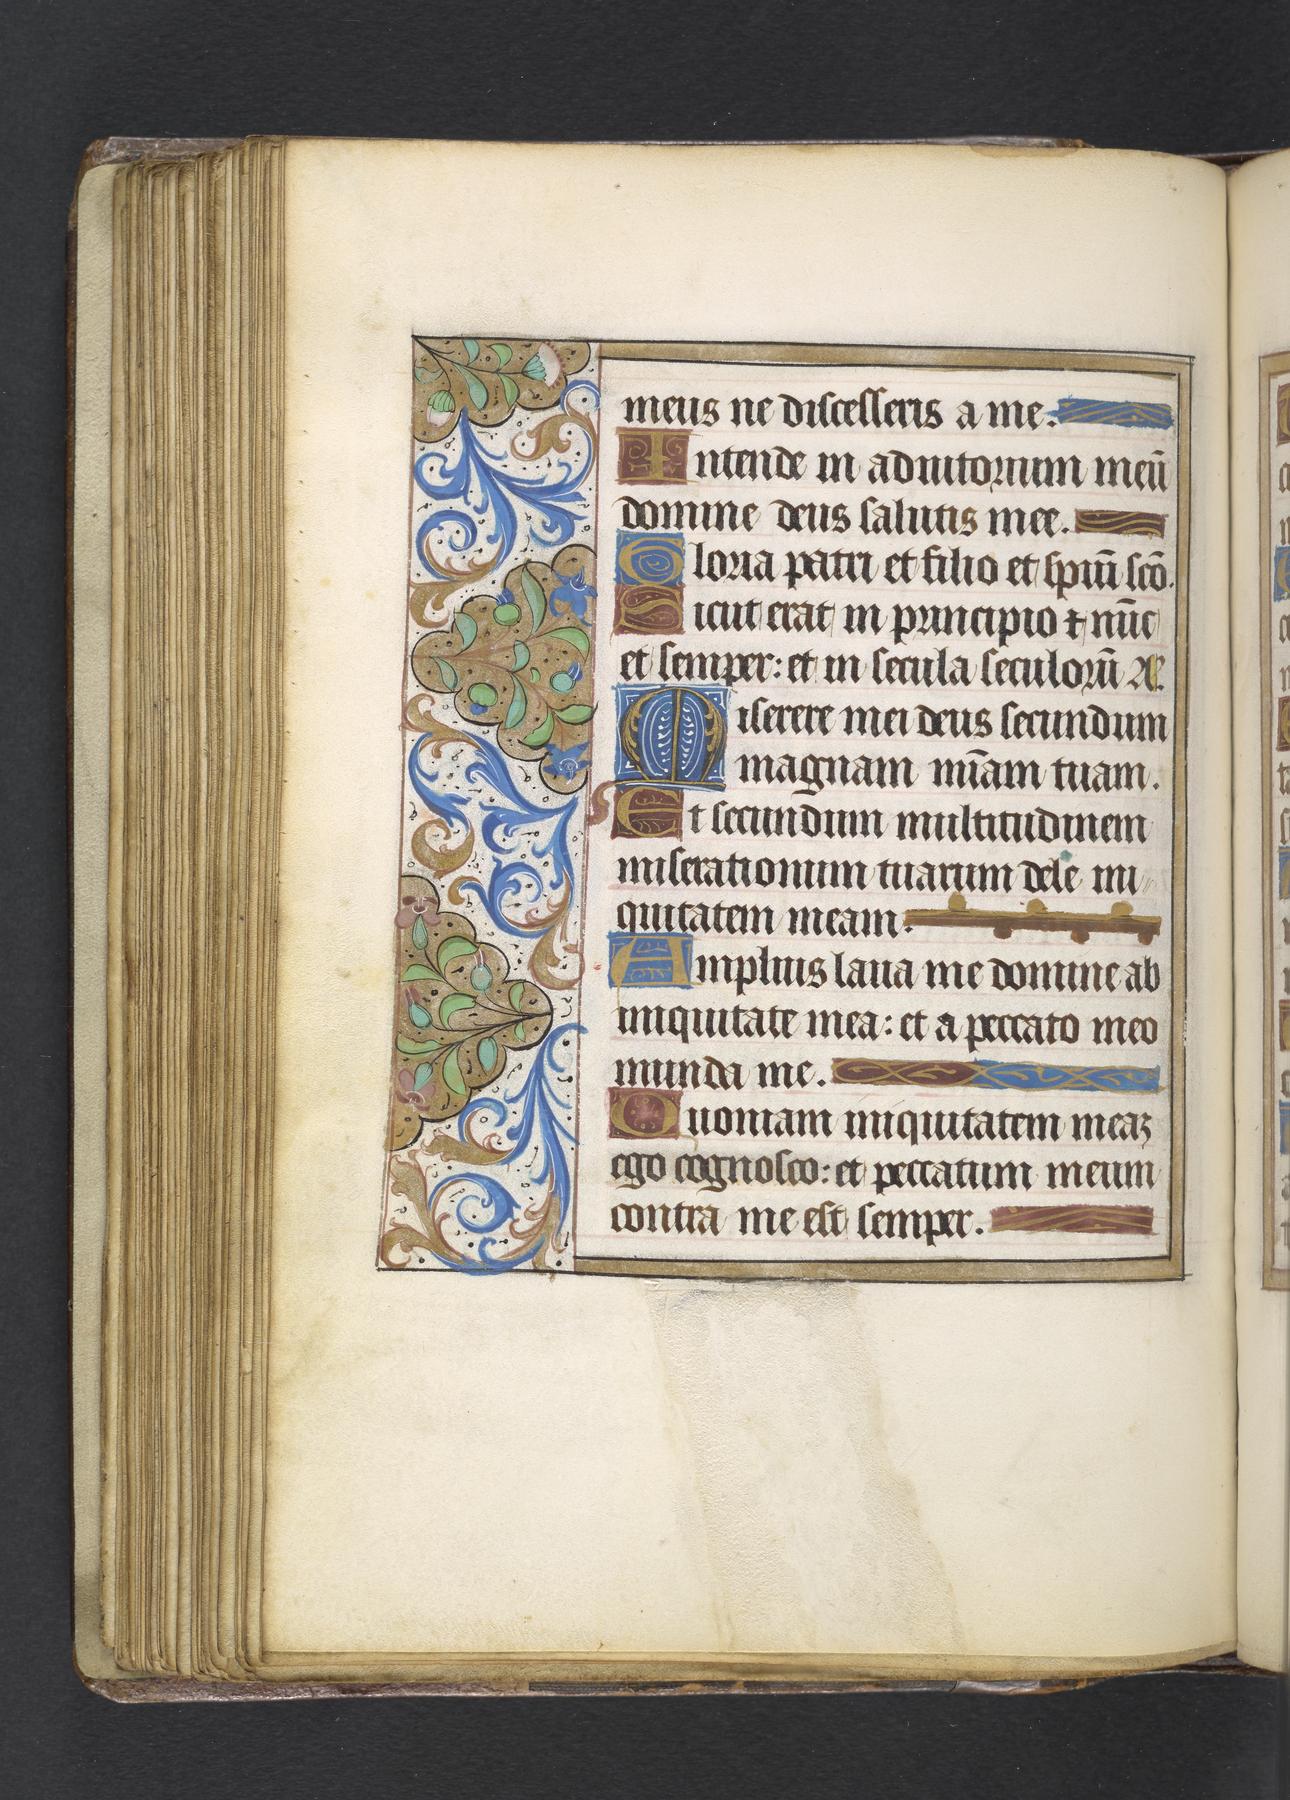 meus ne discesseris a me.
Intende in adiutorium meū
domine deus salutis mee.
Gloria patri et filio et spiūi scō.
Sicut erat in principio ⁊ nūc
et semper: et in secula seculorū Am̄.
Miserere mei deus secundum
magnam mīam tuam.
Et secundum multitudinem
miserationum tuarum dele ini
quitatem meam.
Amplius laua me domine ab
iniquitate mea: et a peccato meo
munda me.
Quoniam iniquitatem meaʒ
ego cognosco: et peccatum meum
contra me est semper.